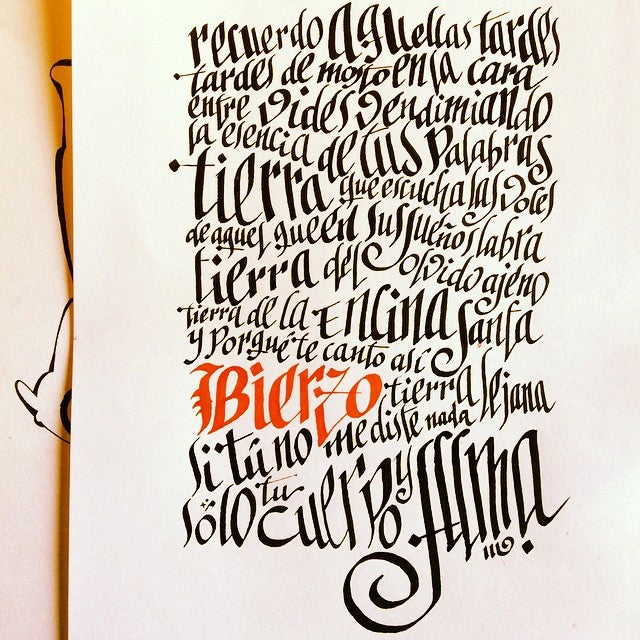 recuerdo aquellas tardes
tardes de mosto en la cara
entre vides vendimiando
la esencia de tus palabras
tierra que escucha las voces
de aquel que en sus sueños labra
tierra del olvido ajeno
tierra de la Encina Santa
y porqué te canto así
Bierzo tierra lejana
si tú no me diste nada
sólo tu cuerpo y Alma.